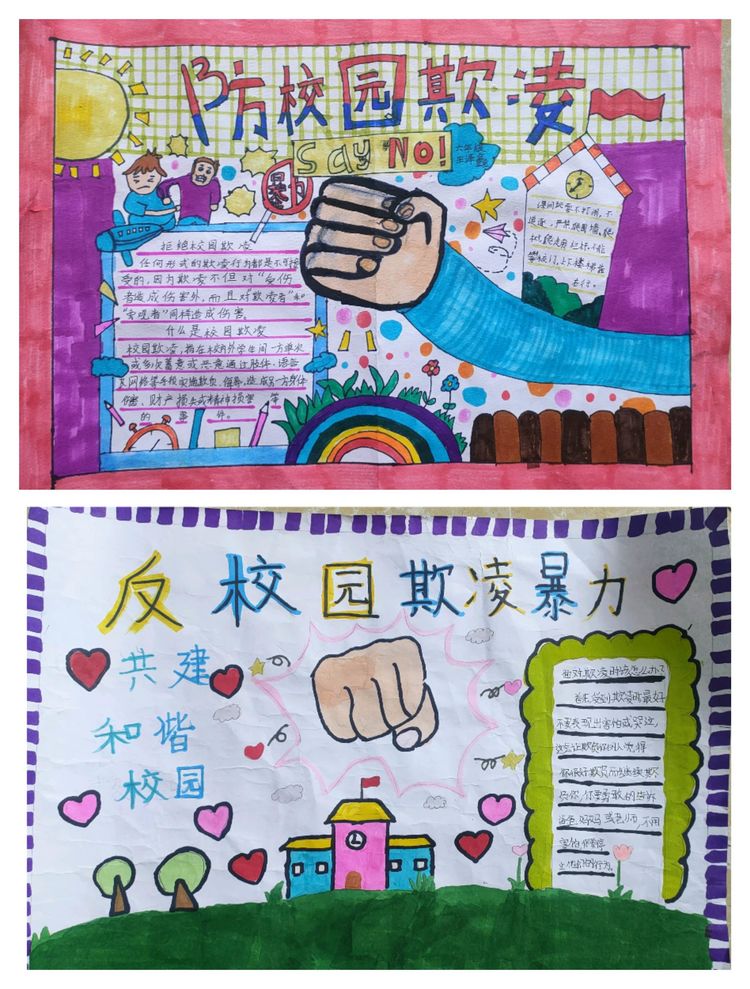 防校园欺凌
Say NO!
六年级
暴力
拒绝校园欺凌
任何形式的欺凌行为都是不可接
受的,因为欺凌不但对“受伤
者造成伤害外,而且对“欺凌者”和
“旁观者”同样造成伤害。
什么是校园欺凌
校园欺凌,指在校内外学生间一方单次
或多次蓄意或恶意通过肢体、语言
及网络等手段实施欺负、侮辱,造成另一方身体
伤害、财产损失或精神损害等
的事件。
课间要不打闹,不
追逐,严禁爬围墙、爬
树,爬走廊栏杆,不能
攀校门,上下楼梯靠
右行。
反校园欺凌暴力
共建
和谐
校园
面对欺凌时该怎么办?
首先受到欺凌时最好
不要表现出害怕或哭泣,
这会让欺负你的人觉得
你很好欺负而继续欺
负你,你要勇敢的告诉
爸爸妈妈或老师,不用
害怕